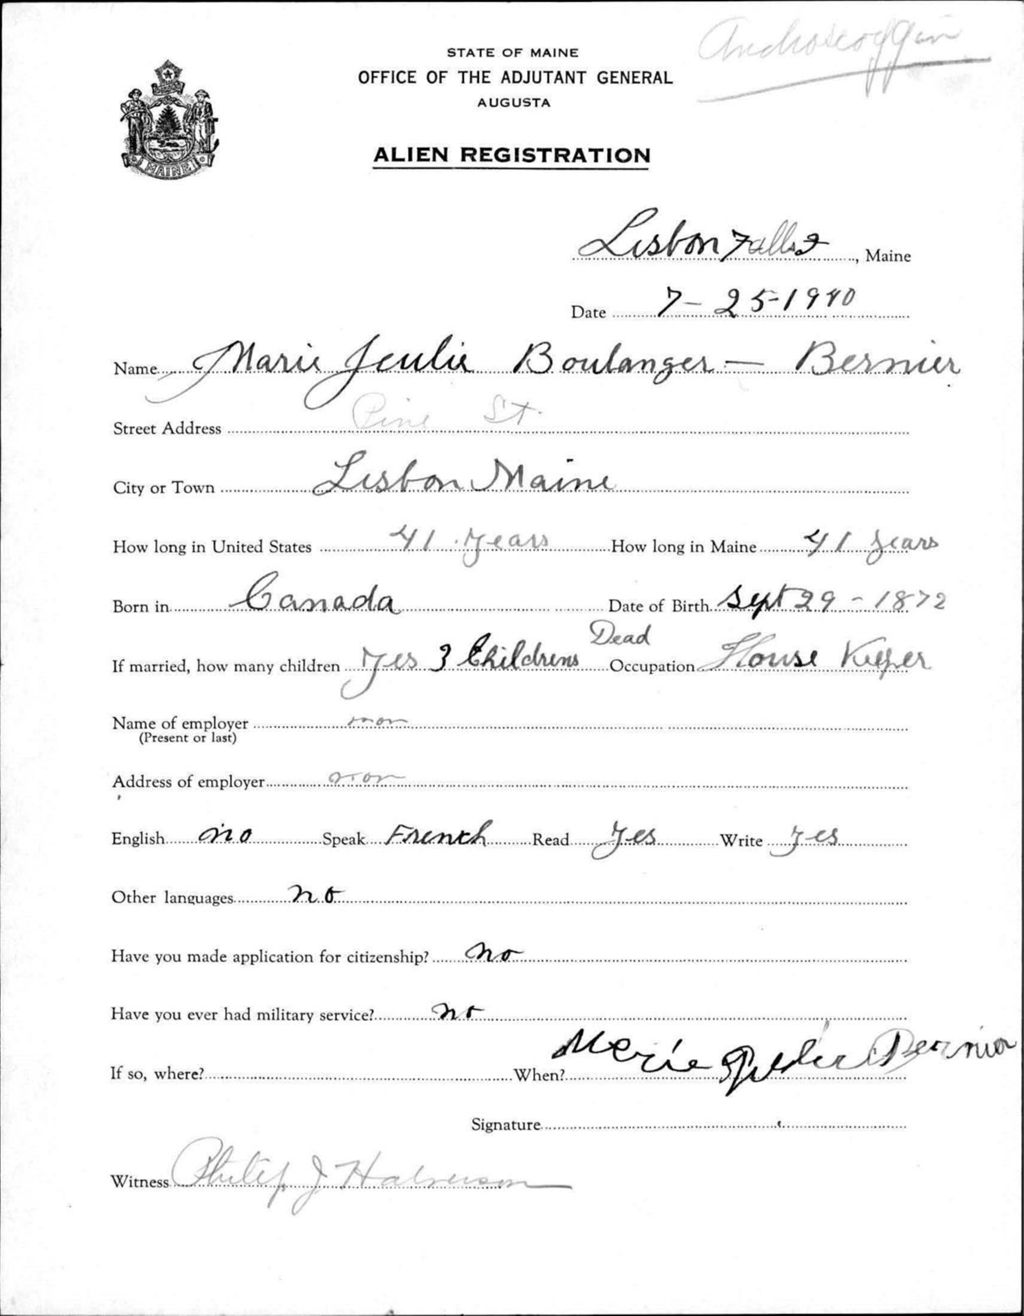 Androscoggin
STATE OF MAINE
OFFICE OF THE ADJUTANT GENERAL
AUGUSTA
MAINE
ALIEN REGISTRATION
Lisbon Falls, Maine
Date 7-25-1940
Name Marie Jeulie Boulanger - Bernier
Street Address Pine St.
City or Town Lisbon Maine
How long in United States 41 years How long in Maine 41 years
Born in Canada Date of Birth Sept 29 - 1872
Dead
If married, how many children Yes 3 Childrens Occupation House Keeper
Name of employer non
(Present or last)
Address of employer non
English no Speak French Read Yes Write yes
Other languages no
Have you made application for citizenship? no
Have you ever had military service? no
Bernier
If so, where? When?
Signature
Witness Philip J Halverson